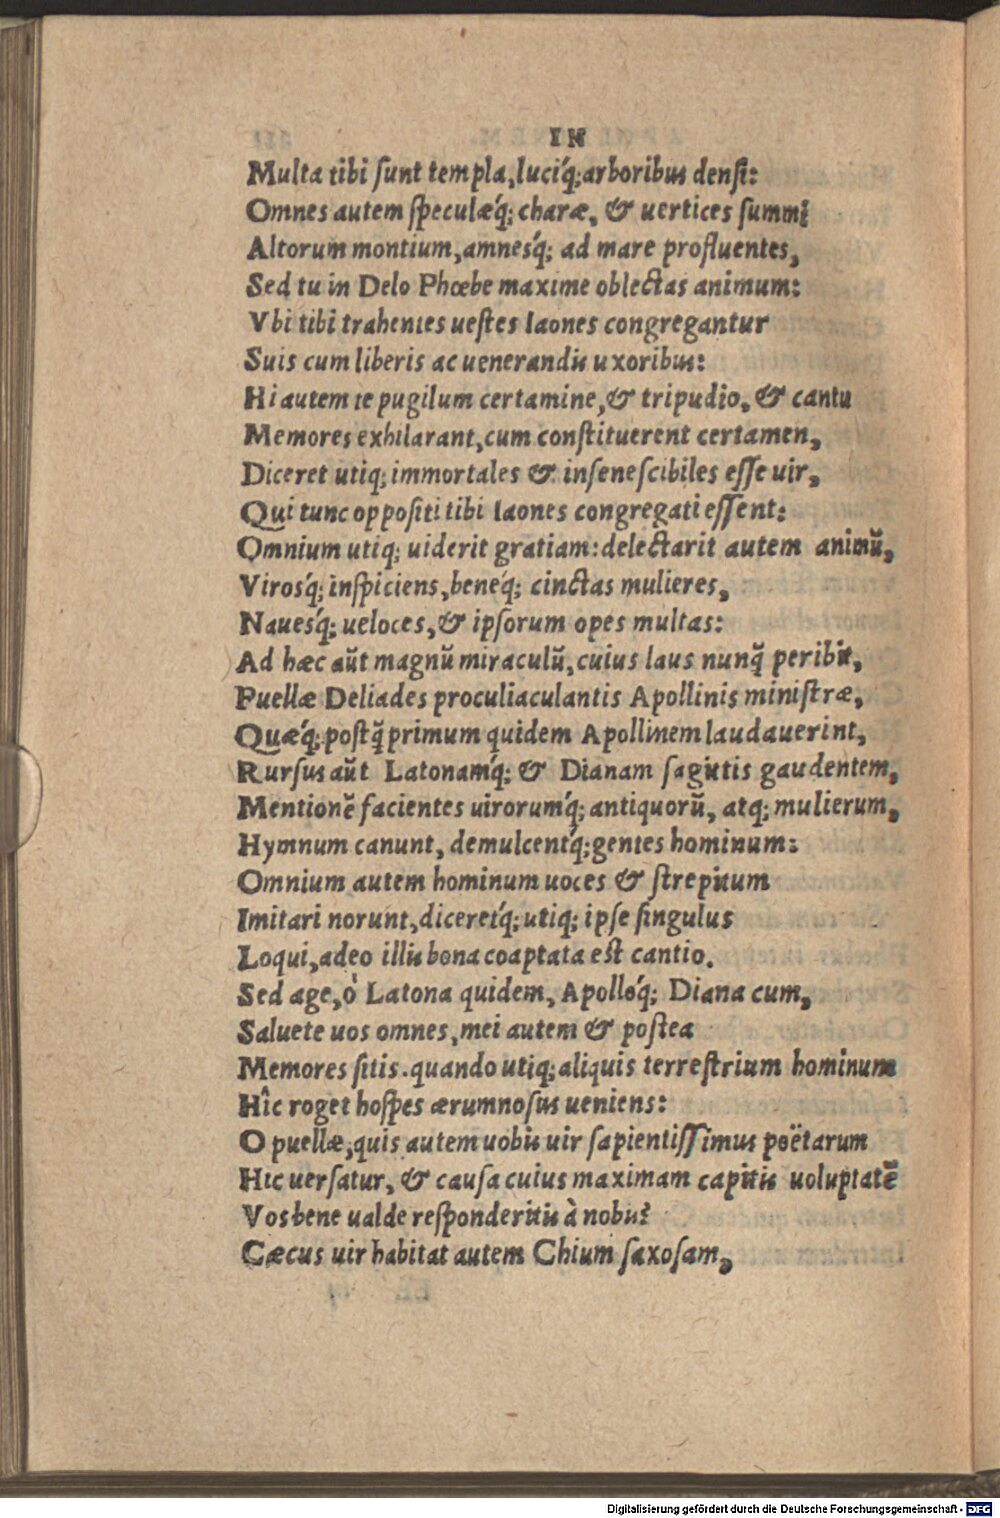 IN
Multa tibi sunt templa, luciq́;arboribus densi:
Omnes autem speculæq́; charæ, & uertices summi
Altorum montium, amnesq́; ad mare profluentes,
Sed tu in Delo Phœbe maxime oblectas animum:
Vbi tibi trahentes uestes Iaones congregantur
Suis cum liberis ac uenerandis uxoribus:
Hi autem te pugilum certamine, & tripudio, & cantu
Memores exhilarant, cum constituerent certamen,
Diceret utiq; immortales & insenescibiles esse uir,
Qui tunc oppositi tibi Iaones congregati essent:
Omnium utiq; uiderit gratiam: delectarit autem animũ,
Virosq́; inspiciens, beneq́; cinctas mulieres,
Nauesq́; ueloces, & ipsorum opes multas:
Ad hæc aũt magnũ miraculũ, cuius laus nunq̃ peribit,
Puellæ Deliades proculiaculantis Apollinis ministræ,
Quæq́; postq̃ primum quidem Apollinem laudauerint,
Rursus aũt Latonamq́; & Dianam sagittis gaudentem,
Mentionẽ facientes uirorumq́; antiquorũ, atq; mulierum,
Hymnum canunt, demulcentq́; gentes hominum:
Omnium autem hominum uoces & strepitum
Imitari norunt, diceretq́; utiq; ipse singulus
Loqui, adeo illis bona coaptata est cantio.
Sed age, ò Latona quidem, Apolloq́; Diana cum,
Saluete uos omnes, mei autem & postea
Memores sitis. quando utiq; aliquis terrestrium hominum
Hîc roget hospes ærumnosus ueniens:
O puellæ, quis autem uobis uir sapientissimus poëtarum
Hic uersatur, & causa cuius maximam capitis uoluptatẽ
Vos bene ualde responderitis à nobis?
Cæcus uir habitat autem Chium saxosam,
Digitalisierung gefördert durch die Deutsche Forschungsgemeinschaft - DFG